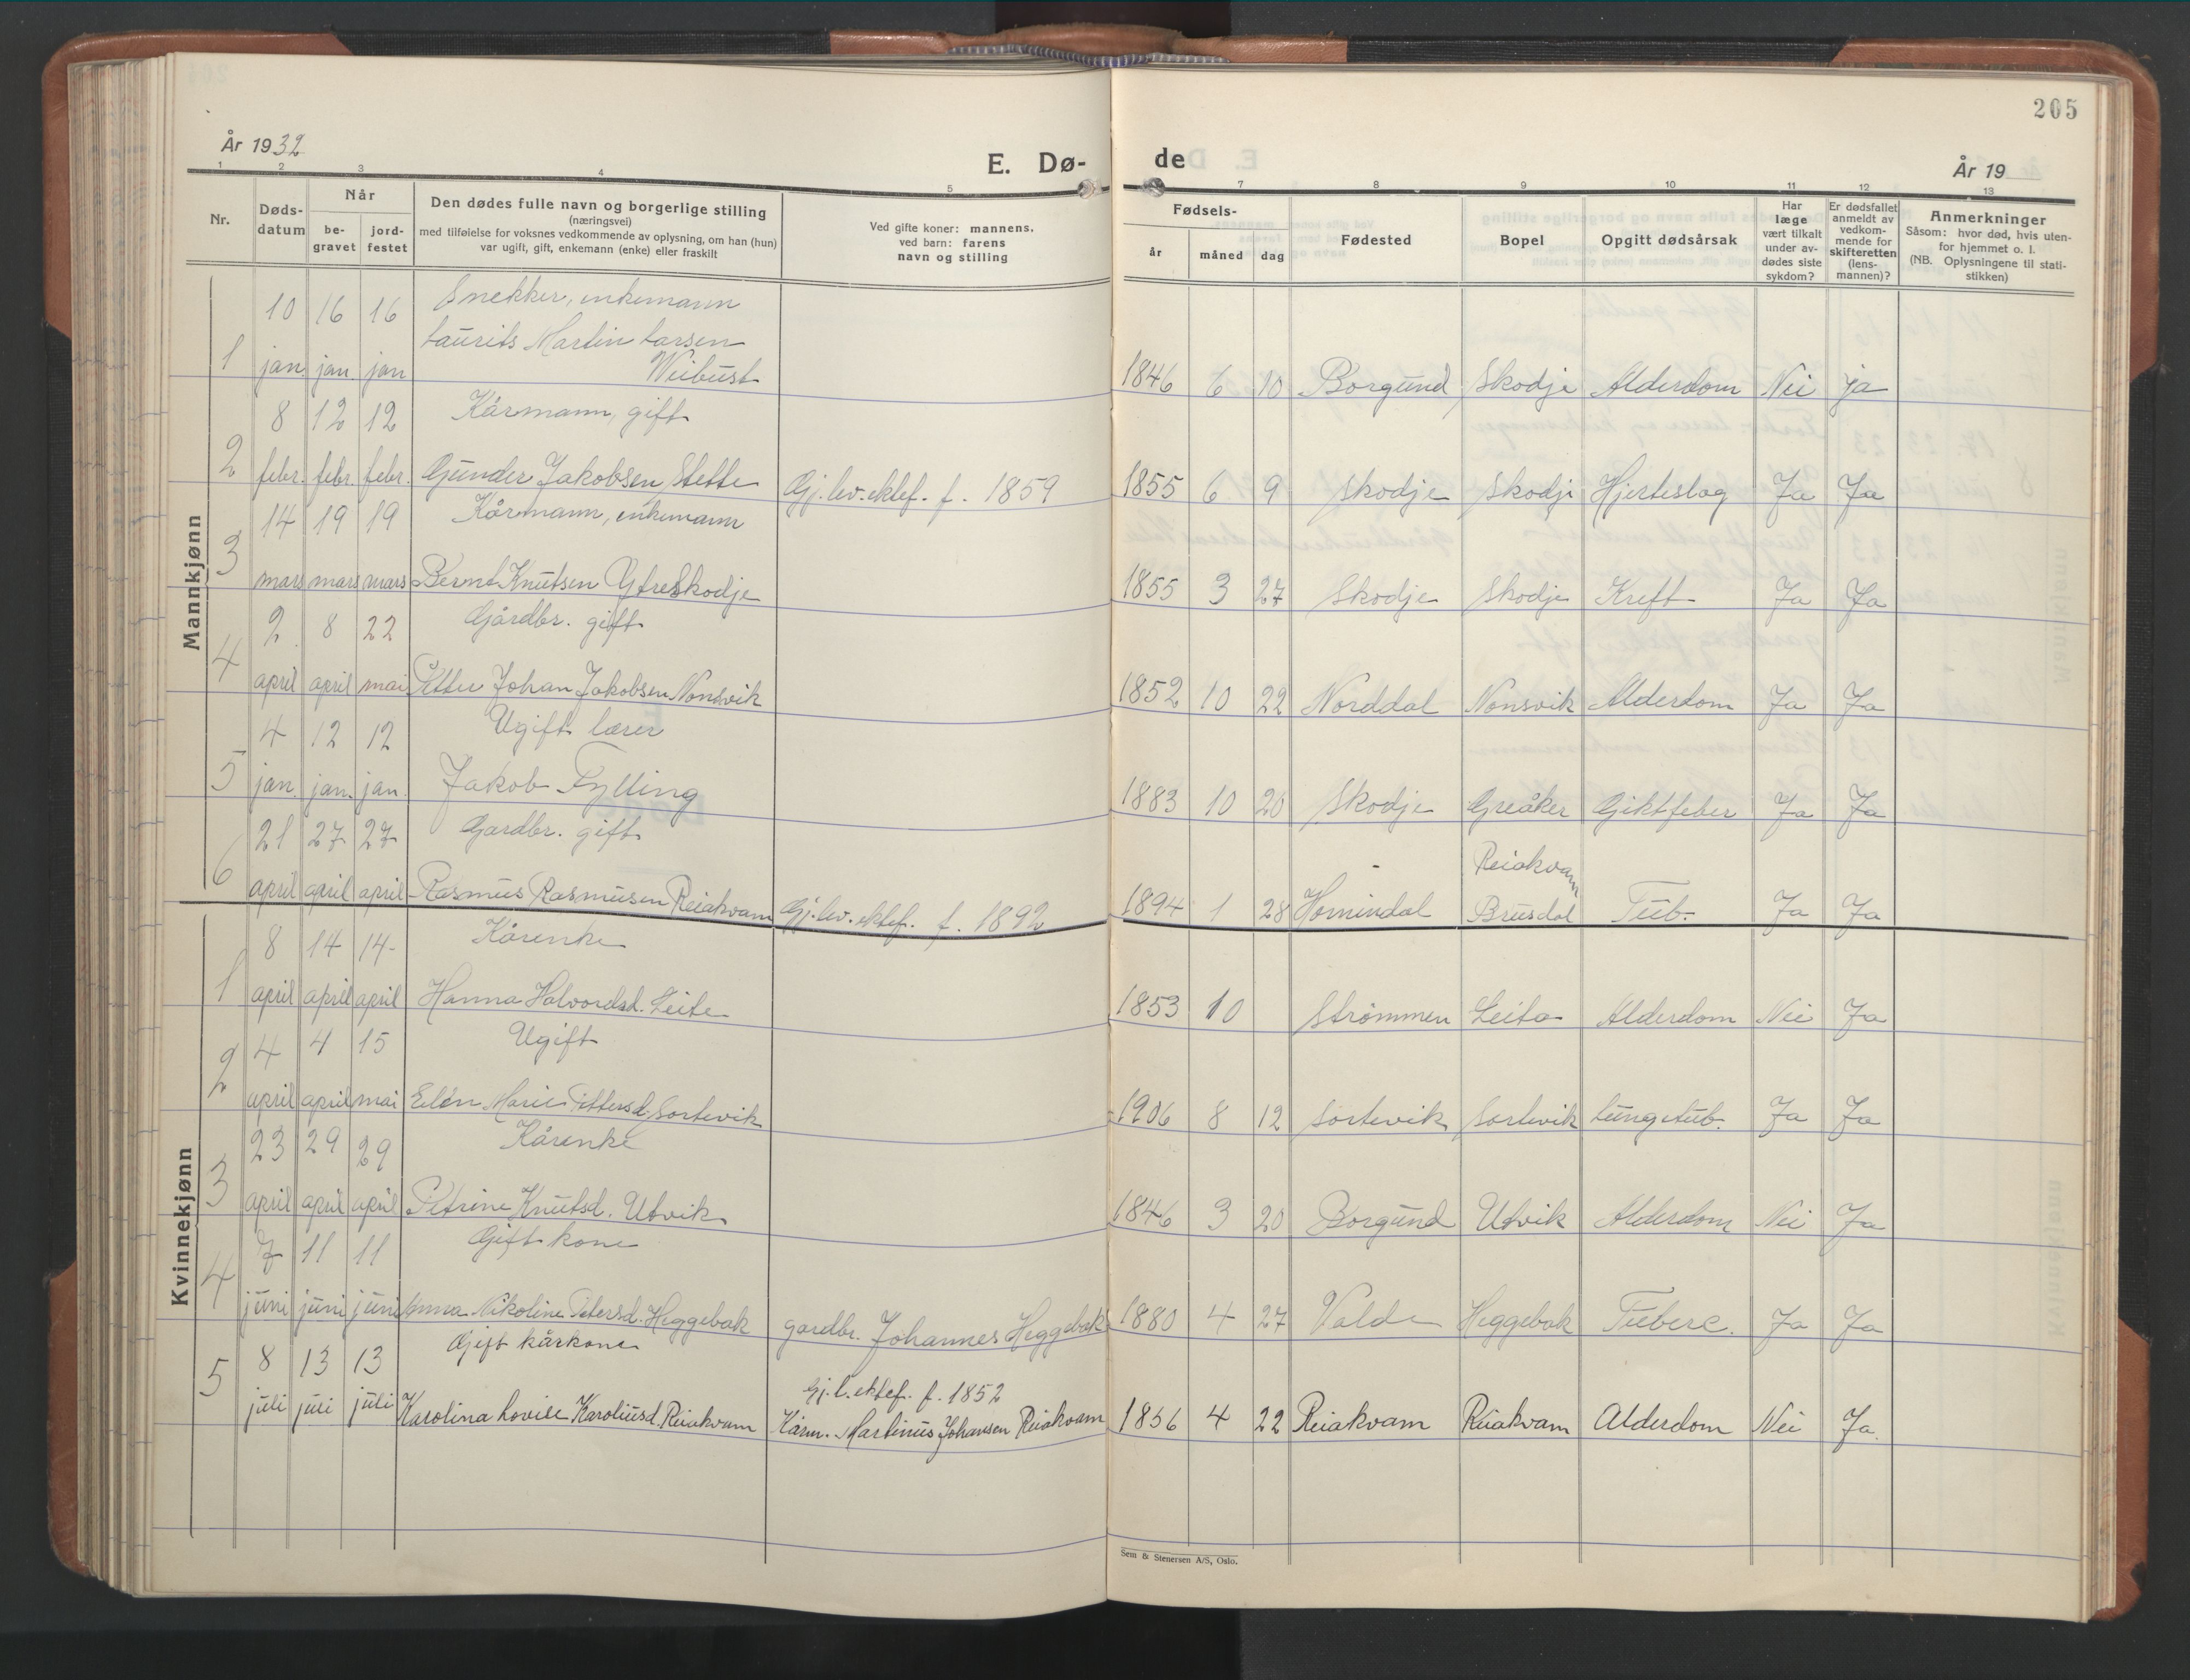 205
År 1932
E. Dø-
de
År 19
1 2 3 4 5 7 8 9 10 11 12 13
Nr.
Døds-
datum
Når
be-
gravet
jord-
festet
Den dødes fulle navn og borgerlige stilling
(næringsvei)
med tilføielse for voksnes vedkommende av oplysning, om han (hun)
var ugift, gift, enkemann (enke) eller fraskilt
Ved gifte koner: mannens,
ved barn: farens
navn og stilling
Fødsels-
år måned dag
Fødested
Bopel
Opgitt dødsårsak
Har
læge
vært tilkalt
under av-
dødes siste
sykdom?
Er dødsfallet
anmeldt av
vedkom-
mende for
skifteretten
(lens-
mannen)?
Anmerkninger
Såsom: hvor død, hvis uten-
for hjemmet o. l.
(NB. Oplysningene til stati-
stikken)
Mannkjønn
10 16 16 Snekker, enkemann
Laurits Martin Larsen
1 jan. jan. jan Weibust 1846 6 10 Borgund Skodje Alderdom Nei ja
8 12 12 Kårmann, gift
2 febr. febr. febr. Gunder Jakobsen Stette Gj. lev. ektef. f. 1859 1855 6 9 Skodje Skodje Hjerteslag Ja Ja
14 19 19 Kårmann, enkemann
3 mars mars mars Bernt Knutsen Ytreskodje 1855 3 27 Skodje Skodje Kreft Ja Ja
2 8 22 Gårdbr. gift
4 april april mai Petter Johan Jakobsen Nonsvik 1852 10 22 Norddal Nonsvik Alderdom Ja Ja
4 12 12 Ugift lærer
5 jan. jan. jan. Jakob Fylling 1883 10 20 Skodje Greåker Giktfeber Ja Ja
21 27 27 Gardbr. gift Reiakvam
6 april april april Rasmus Rasmusen Reiakvam Gj. lev. ektef. f. 1892 1894 1 28 Hornindal Brusdal Tub. Ja Ja
Kvinnekjønn
8 14 14 Kårenke
1 april april april Hanna Halvordsd. Leite 1853 10 Strømmen Leite Alderdom Nei Ja
4 4 15 Ugift
2 april april mai Elén Marie Pettersd. Sortevik 1906 8 12 Sortevik Sortevik Lungetub. Ja Ja
23 29 29 Kårenke
3 april april april Petrine Knutsd. Utvik 1846 3 20 Borgund Utvik Alderdom Nei Ja
7 11 11 Gift kone
4 juni juni juni Anna Nikoline Petersd. Heggebak gardbr. Johannes Heggebak 1880 4 27 Valde Heggebak Tuberc. Ja Ja
8 13 13 Gift kårkone Gj. l. ektef. f. 1852
5 juli juli juli Karolina Lovise Karoliusd. Reiakvam Kårm. Martinus Johansen Reiakvam 1856 4 22 Reiakvam Reiakvam Alderdom Nei Ja.
Sem & Stenersen A/S, Oslo.